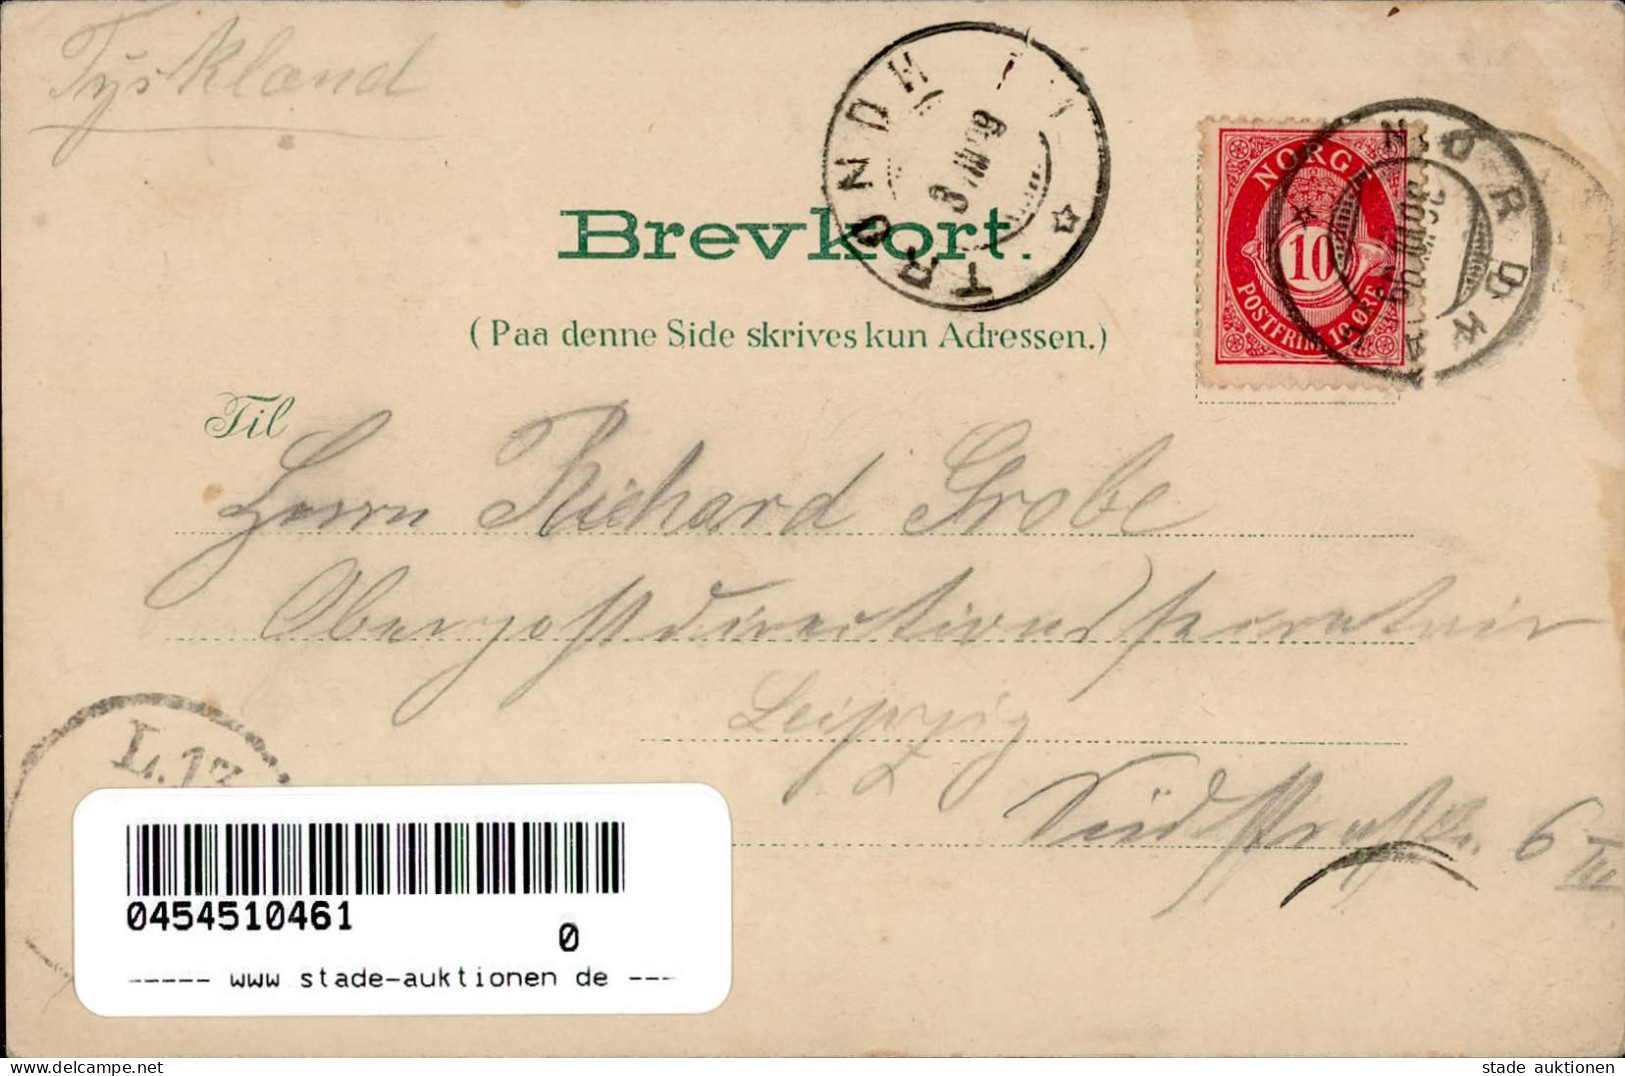 Tyskland
TRONDH
3 VIII 99
NORGE
10
POSTFRIM. 10 ØRE
NORDK
Brevkort.
(Paa denne Side skrives kun Adressen.)
Til
Herrn Richard Grobe
Oberpostdirectionssecretair
Leipzig
Südstraße 6 III
L.13
0454510461
0
----- www stade-auktionen de ---
stade auktionen